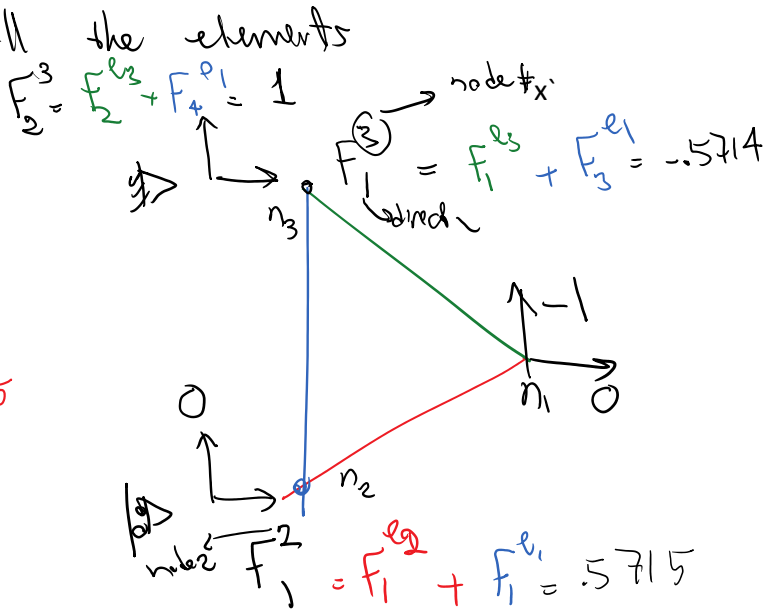 ll the elements
F₂³ = F₂^e₃ + F₄^e₁ = 1
node #x
F₁³ = F₁^e₃ + F₃^e₁ = -.5714
n₃
-1
n₁ 0
0
n₂
node 2
F₁² = F₁^e₂ + F₁^e₁ = .5715